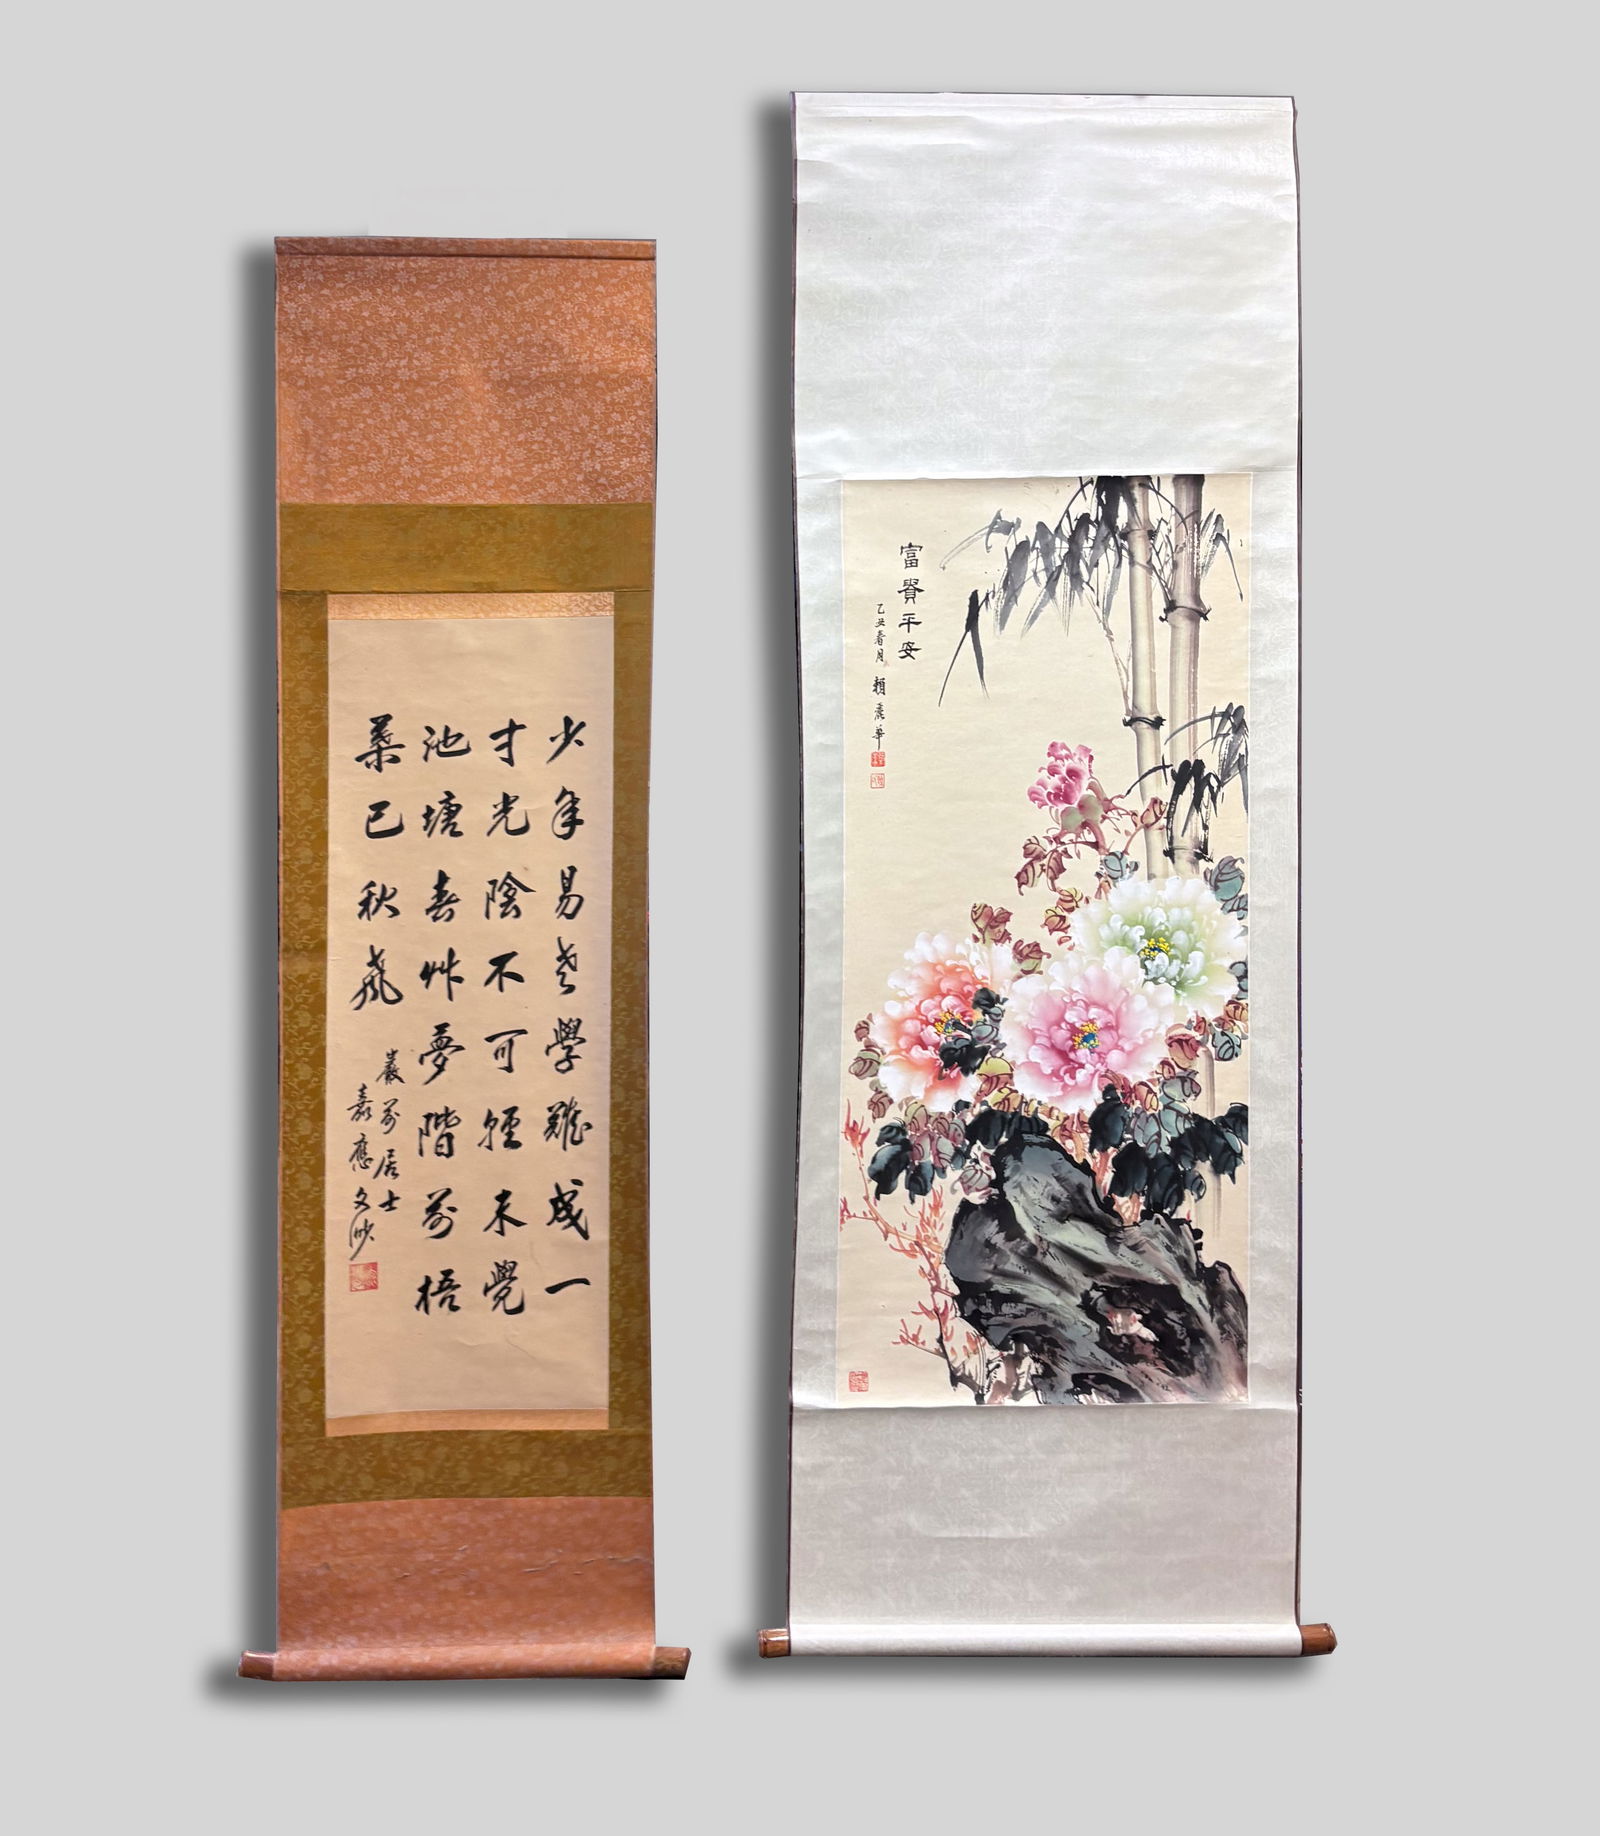 少年易老學難成一
寸光陰不可輕未覺
池塘春艸夢階前梧
葉已秋聲
巖前居士
嘉應文
富貴平安
乙丑春月 賴 華